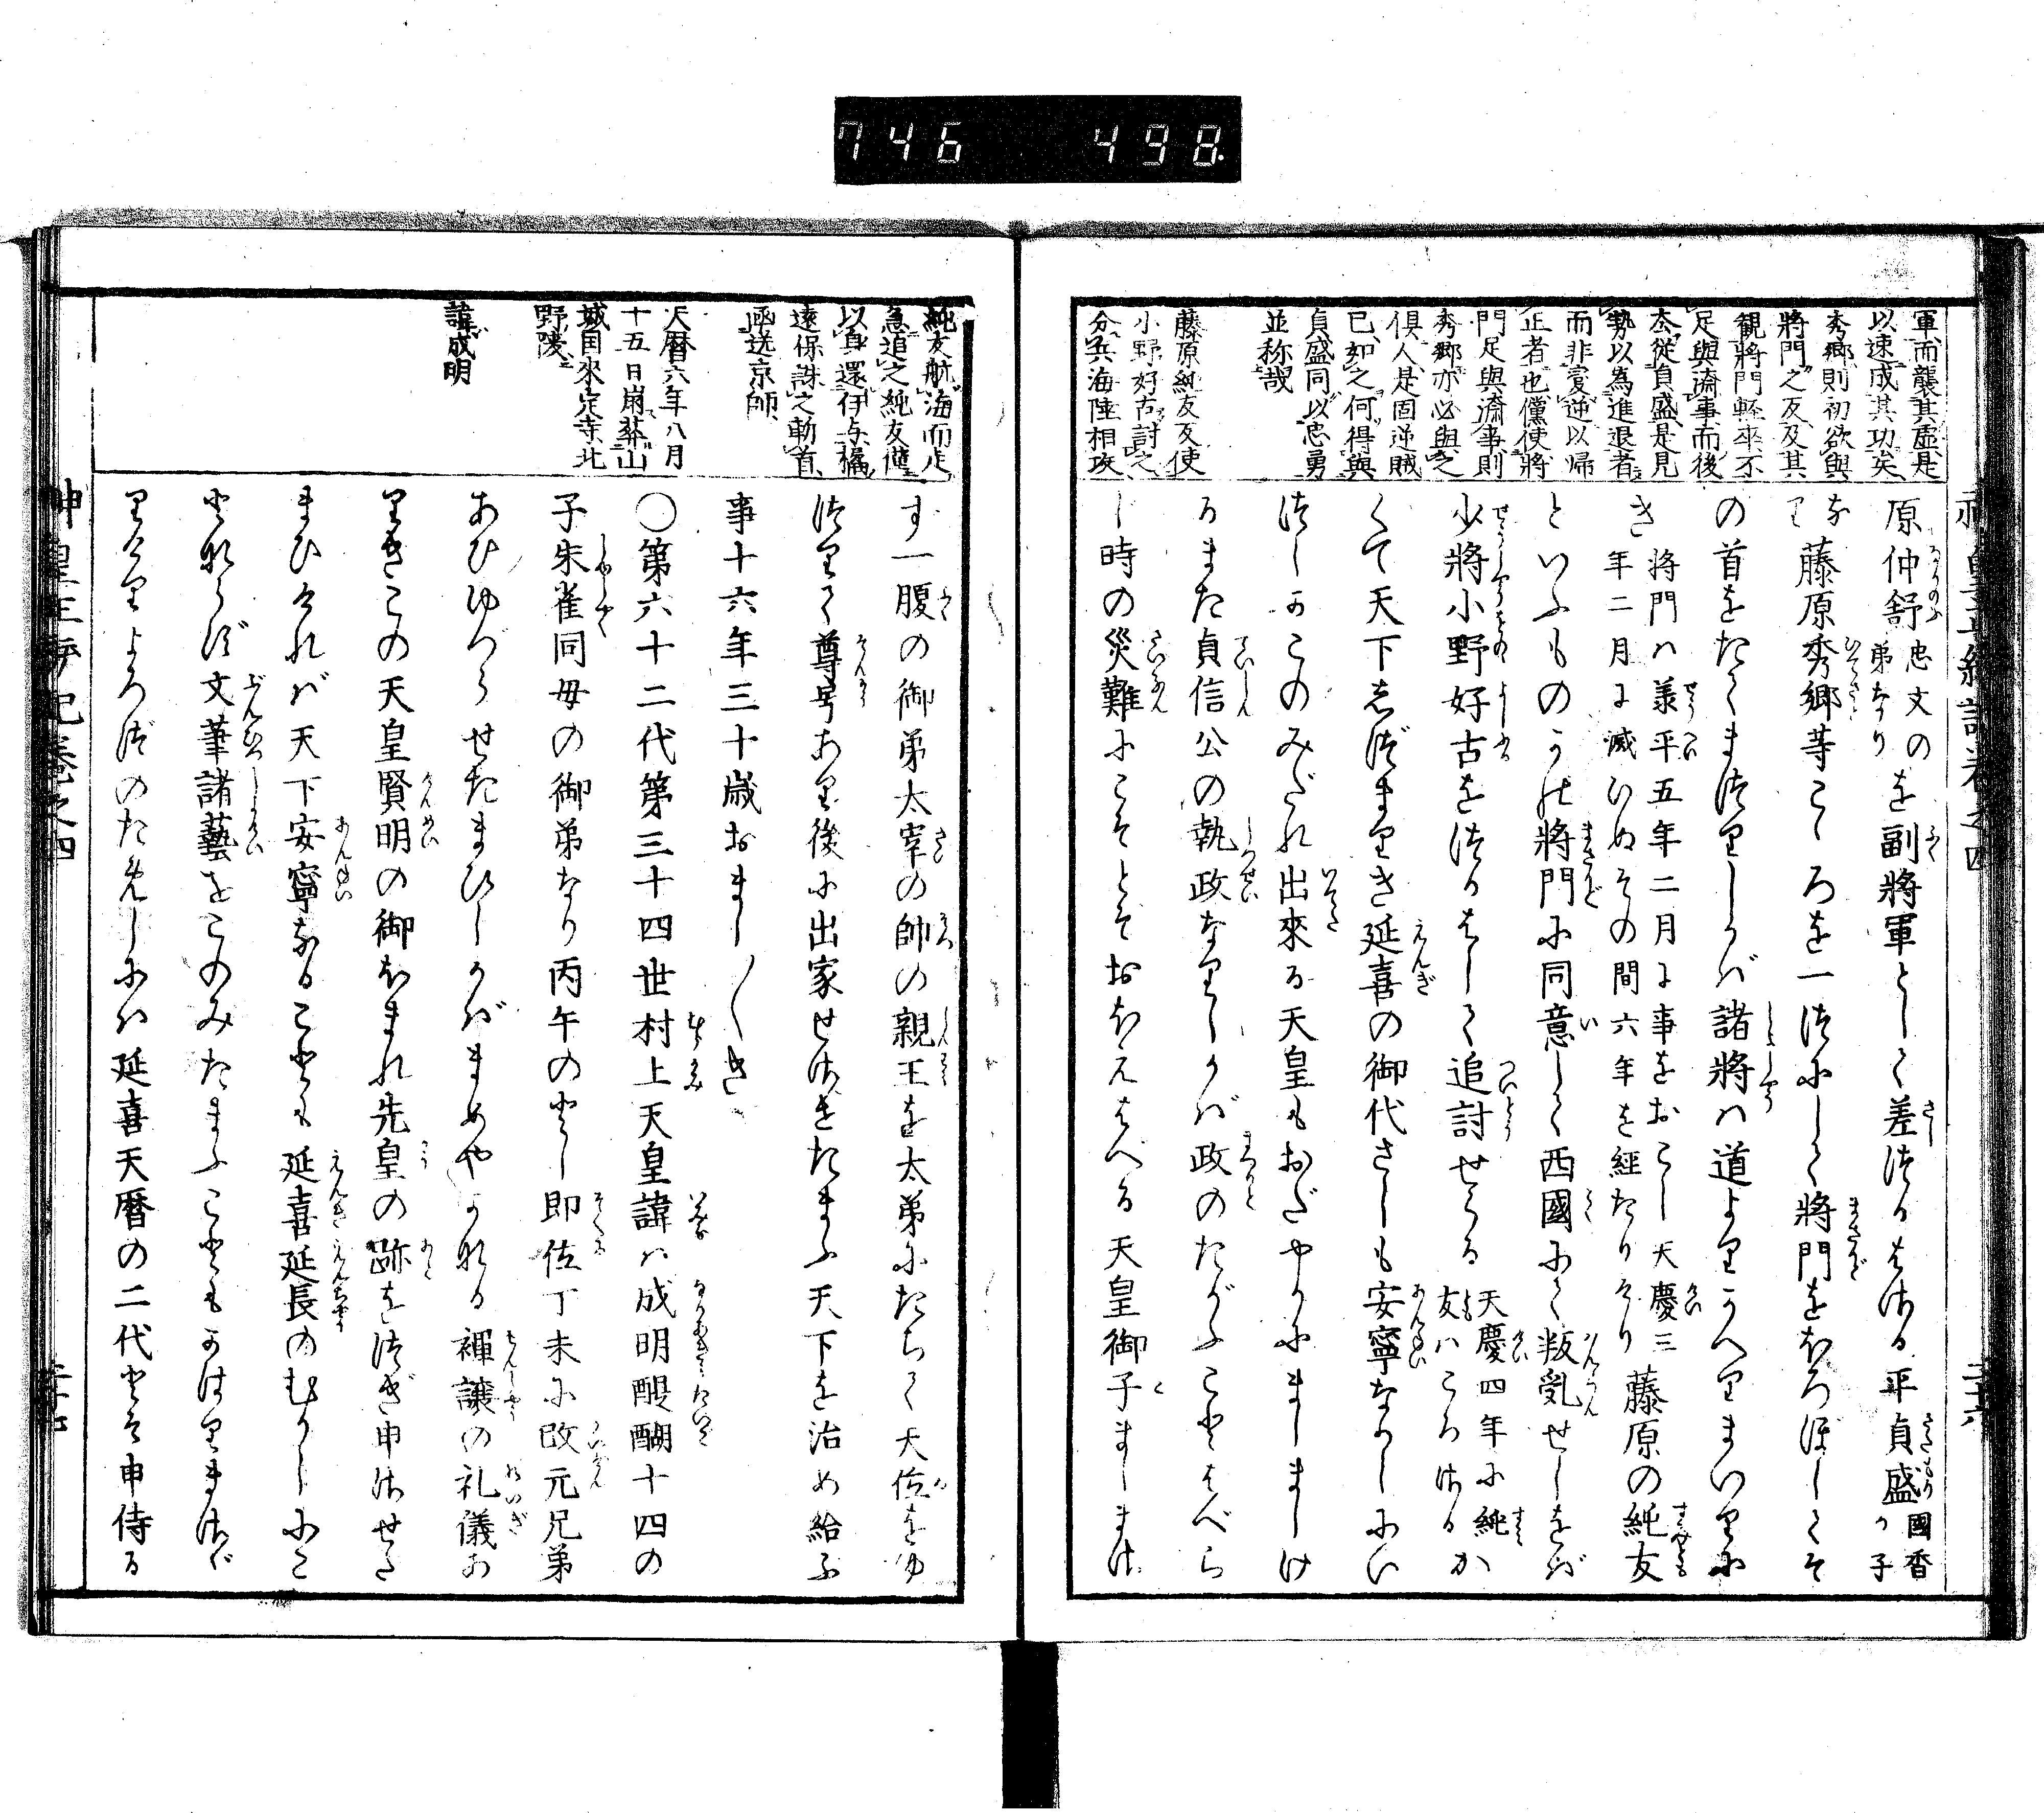 746 498.
軍而襲其虛是
以速成其功矣
秀郷則初欲與
將門之反及其
觀將門輕率不
足與濟事而後
去從貞盛是見
勢以為進退者
而非憂逆以歸
正者也儻使將
門足與濟事則
秀郷亦必與之
俱人是固逆賊
已如之何得與
貞盛同以忠勇
並称哉
藤原純友反使
小野好古討之
分兵海陸相攻
原仲舒忠文の弟なりを副將軍として差つかはさる平貞盛國香が子
藤原秀郷等こゝろを一つにして將門をほろぼしてそ
の首をたてまつりしかば諸將ハ道よりかへりまいりに
き將門ハ承平五年二月に事をおこし天慶三年二月に滅びぬその間六年を経たりけり藤原の純友
といふものかの將門に同意して西國にて叛乱せしをば
少將小野好古をつかはして追討せらる天慶四年に純友ハころさるか
くて天下しづまりき延喜の御代さしも安寧なりしにい
つしかこのみだれ出來る天皇もおだやかにましましけ
るまた貞信公の執政なりしかば政のたがふことはべら
じ時の災難にこそとぞおぼえはべる天皇御子ましまさ
純友航海而走
急追之純友僅
以身還伊与橘
遠保誅之斬首
函送京師
天暦六年八月
十五日崩葬山
城国來定寺北
野陵
諱成明
ず一腹の御弟太宰の帥の親王を太弟にたちて天位をゆ
づりて尊号あり後に出家せさせたまふ天下を治め給ふ
事十六年三十歳おましましき
〇第六十二代第三十四世村上天皇諱ハ成明醍醐十四の
子朱雀同母の御弟なり丙午のとし即位丁未に改元兄弟
あひゆづらせたまひしかばまめやかなる禪讓の礼儀あ
りきこの天皇賢明の御ほまれ先皇の跡をつぎ申させた
まひければ天下安寧なることも延喜延長のむかしにこ
とならず文筆諸藝をこのみたまふこともかはりまさゞ
りけりよろづのためしにハ延喜天暦の二代とぞ申侍る
神皇正統記巻之四